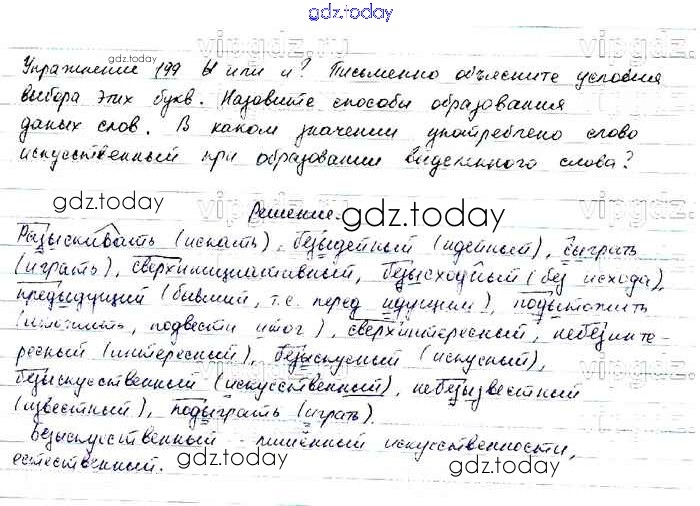 gdz.today
vipgdz.ru
gdz.today
Упражнение 199 Ы или и? Письменно объясните условия
выбора этих букв. Назовите способы образования
даных слов. В каком значении употреблено слово
искусственный при образовании выделенного слова?
gdz.today
Решение.
gdz.today
Разыскивать (искать), безыдейный (идейный), сыграть
(играть), сверхинициативный, безысходный (без исхода),
предыдущий (бывший, т.с. перед идущим), подытожить
(итожить, подвести итог), сверхинтересный, небезинте-
ресный (интересный), безыскусный (искусный),
безыскусственный (искусственный), небезызвестный
(известный), подыграть (играть).
Безыскусственный - лишённый искусственности,
естественный.
gdz.today
gdz.today